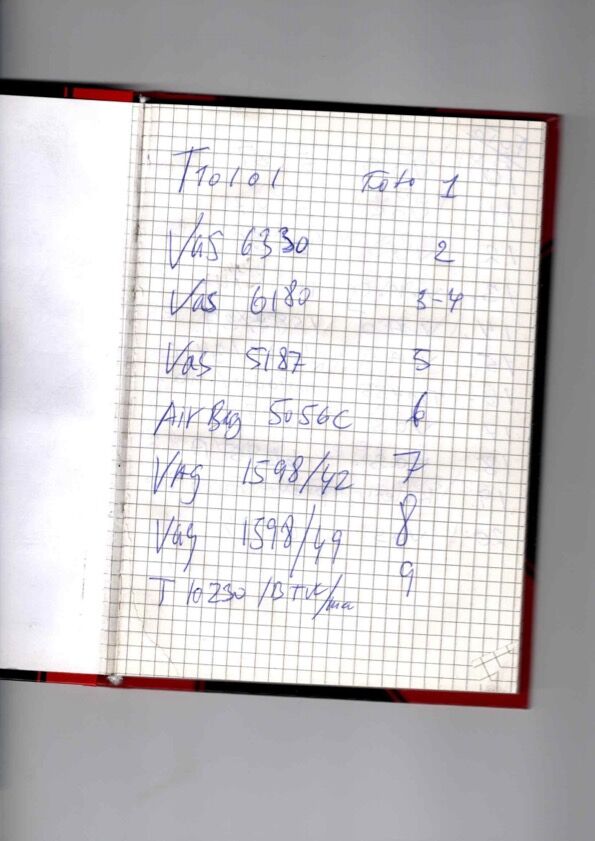 T10101 Foto 1
VAS 6330 2
Vas 6180 3-4
Vas 5187 5
AirBag 5056C 6
VAg 1598/42 7
Vag 1598/49 8
T 10230 9